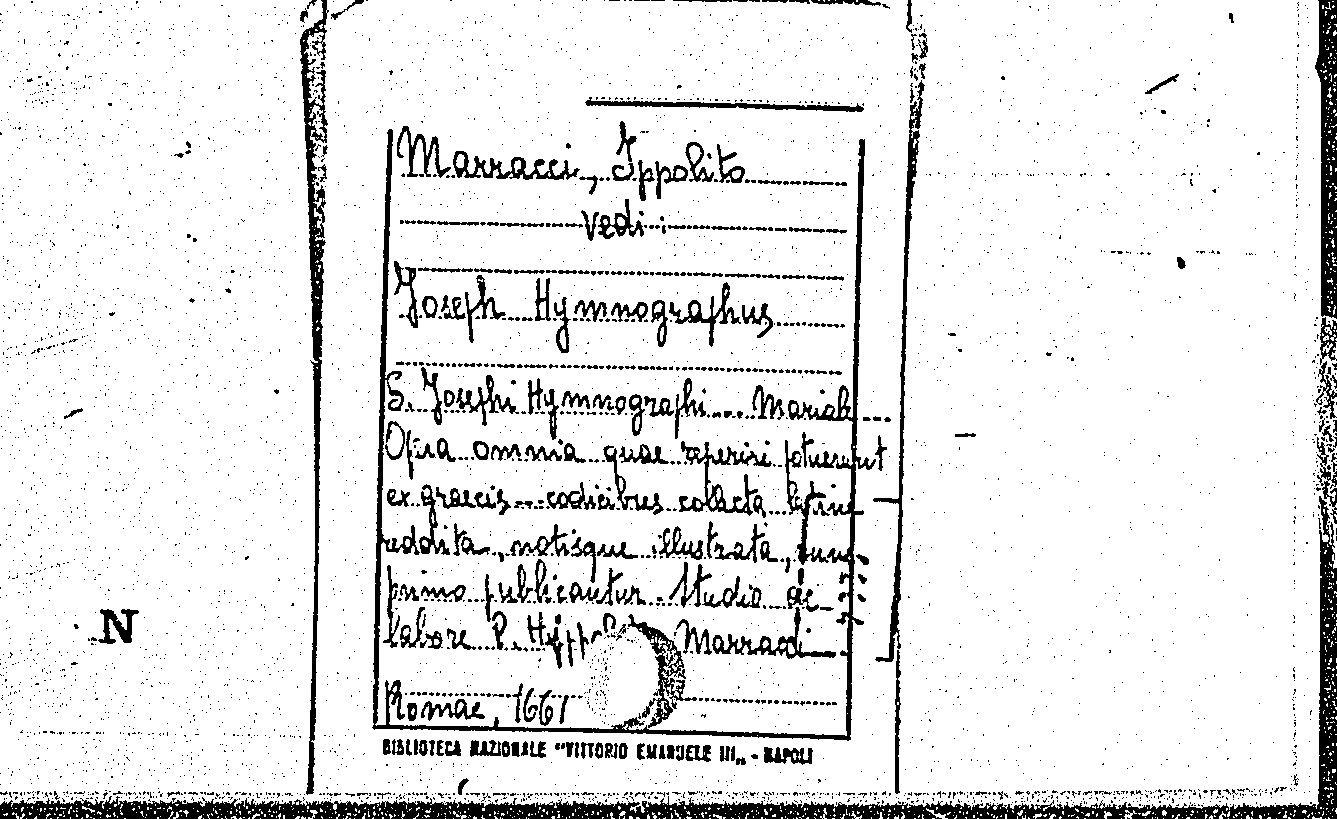 Marracci, Ippolito
vedi:
Joseph Hymnographus
S. Josephi Hymnographi... Mariale
Opera omnia quae reperiri potuerunt
ex graecis... codicibus collecta latine
reddita, notisque illustrata, nunc
primo publicantur. Studio de
labore P. Hippol Marracci
Romae, 1661
BIBLIOTECA NAZIONALE "VITTORIO EMANUELE III„ - NAPOLI
N